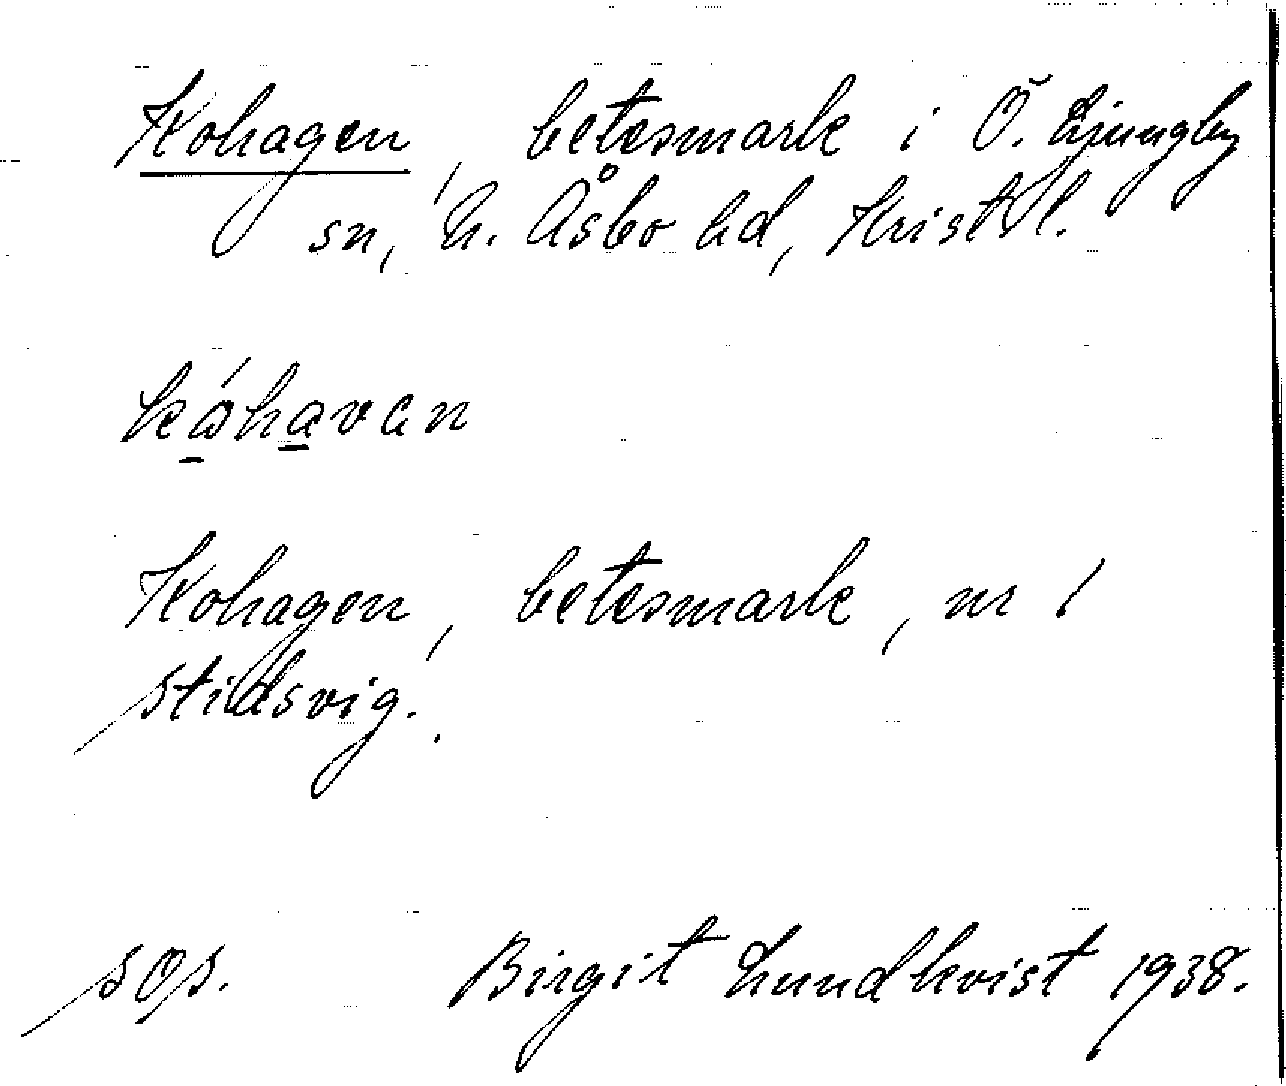 Kohagen, betesmark i Ö. Ljungby
sn, N. Åsbo hd, Krist. l.
kóhavan
Kohagen, betesmark, nr 1
Stidsvig.
sop. Birgit Lundkvist 1938.